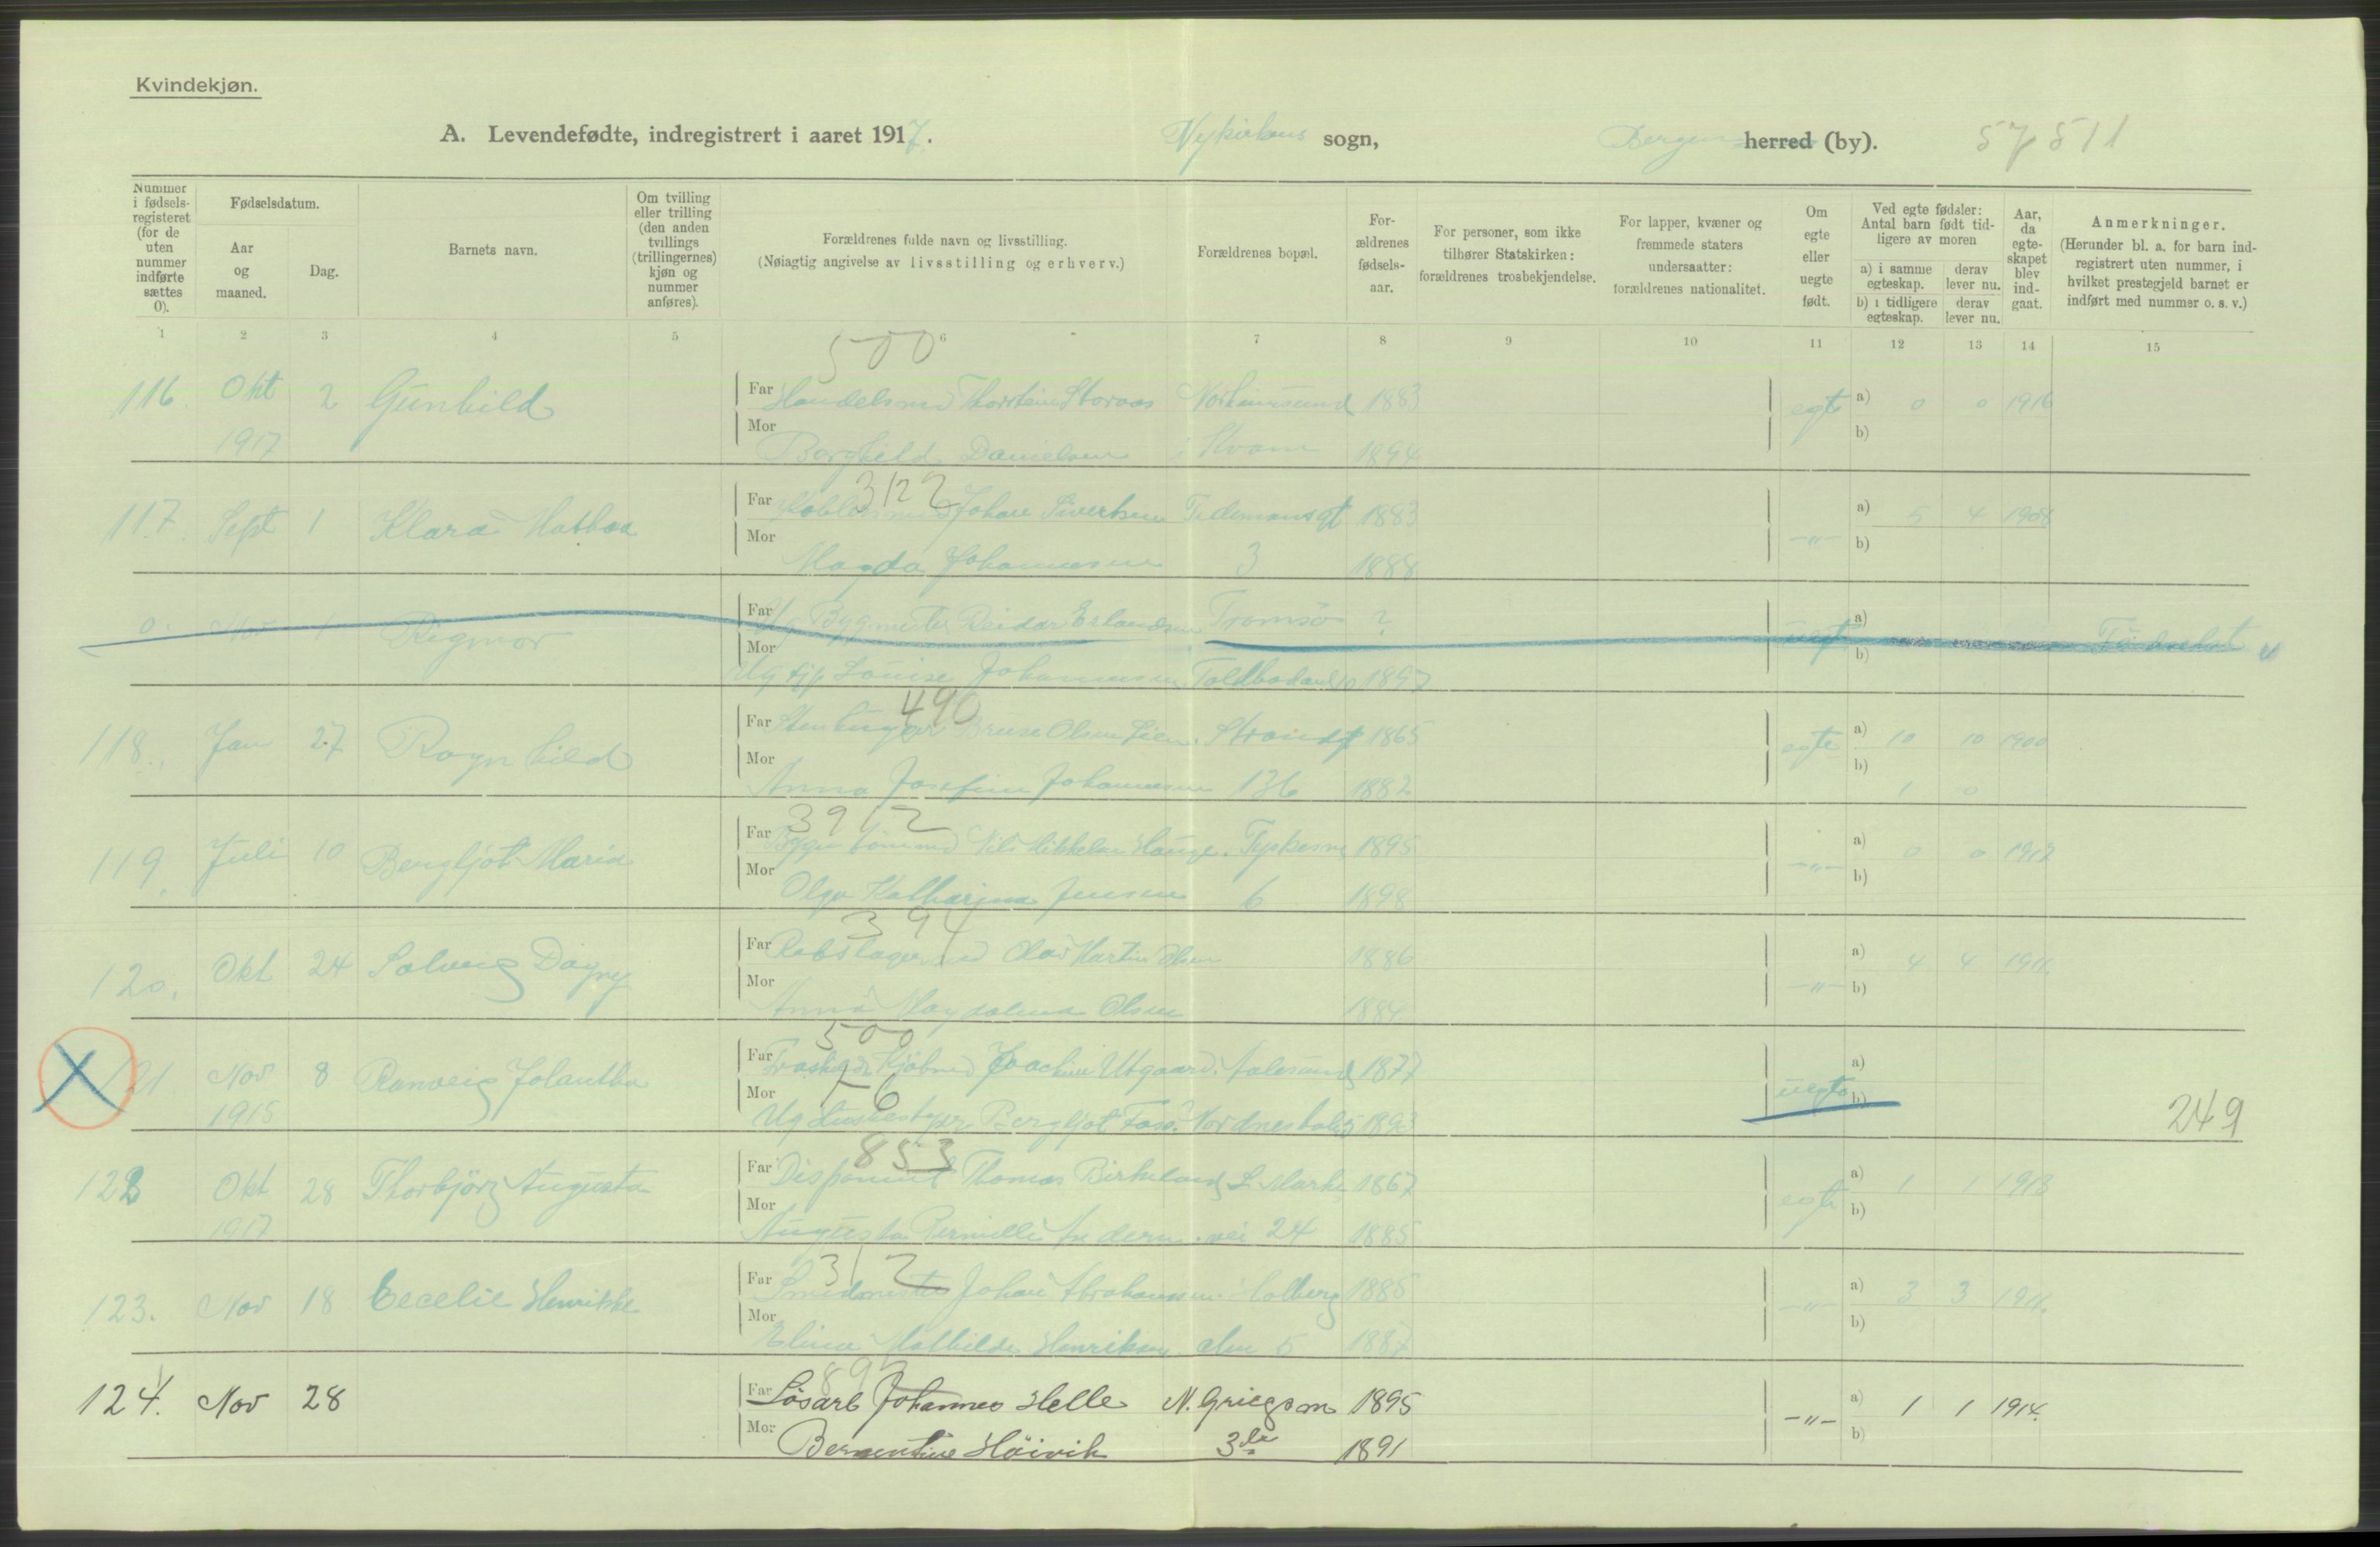 Kvindekjøn.
A. Levendefødte, indregistrert i aaret 1917. Nykirkens sogn, Bergen herred (by). 57511
Nummer i fødsels-registeret (for de uten nummer indførte sættes 0).
Fødselsdatum.
Aar og maaned.
Dag.
Barnets navn.
Om tvilling eller trilling (den anden tvillings (trillingernes) kjøn og nummer anføres).
Forældrenes fulde navn og livsstilling.
(Nøiagtig angivelse av livsstilling og erhverv.)
Forældrenes bopæl.
For-ældrenes fødsels-aar.
For personer, som ikke tilhører Statskirken: forældrenes trosbekjendelse.
For lapper, kvæner og fremmede staters undersaatter: forældrenes nationalitet.
Om egte eller uegte født.
Ved egte fødsler: Antal barn født tid-ligere av moren
a) i samme egteskap. derav lever nu.
b) i tidligere egteskap. derav lever nu.
Aar, da egte-skapet blev ind-gaat.
Anmerkninger.
(Herunder bl. a. for barn ind-registrert uten nummer, i hvilket prestegjeld barnet er indført med nummer o. s. v.)
1 2 3 4 5 6 7 8 9 10 11 12 13 14 15
500
116. Okt 2 Gunhild Far Handelsmd Thorstein Storaas Norheimsund 1883 egte a) 0 0 1916
1917 Mor Borghild Danielsen i Kvam 1894 b)
312
117. Sept 1 Klara Far Johan Sivertsen Tidemansgt 1883 a) 5 4 1908
Mor Magda Johannesen 3 1888 -"- b)
0. Nov 1 Rigmor Far Ug Bygmester Reidar Erlandsen Tromsø ? uegte a)
Mor Ug tjp Louise Johannesen Toldbodalm 1897 b)
490
118. Jan 27 Ragnhild Far Olsen Lien. Strandgt 1865 egte a) 10 10 1900
Mor Anna Josefine Johannesen 136 1882 b) 1 0
3912
119. Juli 10 Bergljot Maria Far Nils Mikkelsen Hauge. Tyskesm 1895 a) 0 0 1917
Mor Olga Katharina Jensen 6 1898 -"- b)
394
120. Okt 24 Solveig Dagny Far Rebslager Olav Martin Olsen 1886 a) 4 4 1911
Mor Anna Magdalena Olsen 1884 -"- b)
500
121. Nov 8 Ranveig Jolantha Far Joachim Utgaard. Aalesund 1877 uegte a)
1915 Mor Ug Bergljot Nordnesbak 5 b) 249
853
122 Okt 28 Thorbjørg Augusta Far Disponent Thomas Birkeland L. Marke 1867 egte a) 1 1 1913
1917 Mor Augusta Pernille vei 24 1885 b)
312
123. Nov 18 Cecelie Henrikke Far Smedmester Johan Abrahamsen Holberg 1885 a) 3 3 1911.
Mor Mathilde Henriksen alm 5 1887 -"- b)
89
124. Nov 28 Far Løsarb Johannes Helle N. Griegsm 1895 a) 1 1 1914.
Mor Bernentine Høivik 3 1891 -"- b)